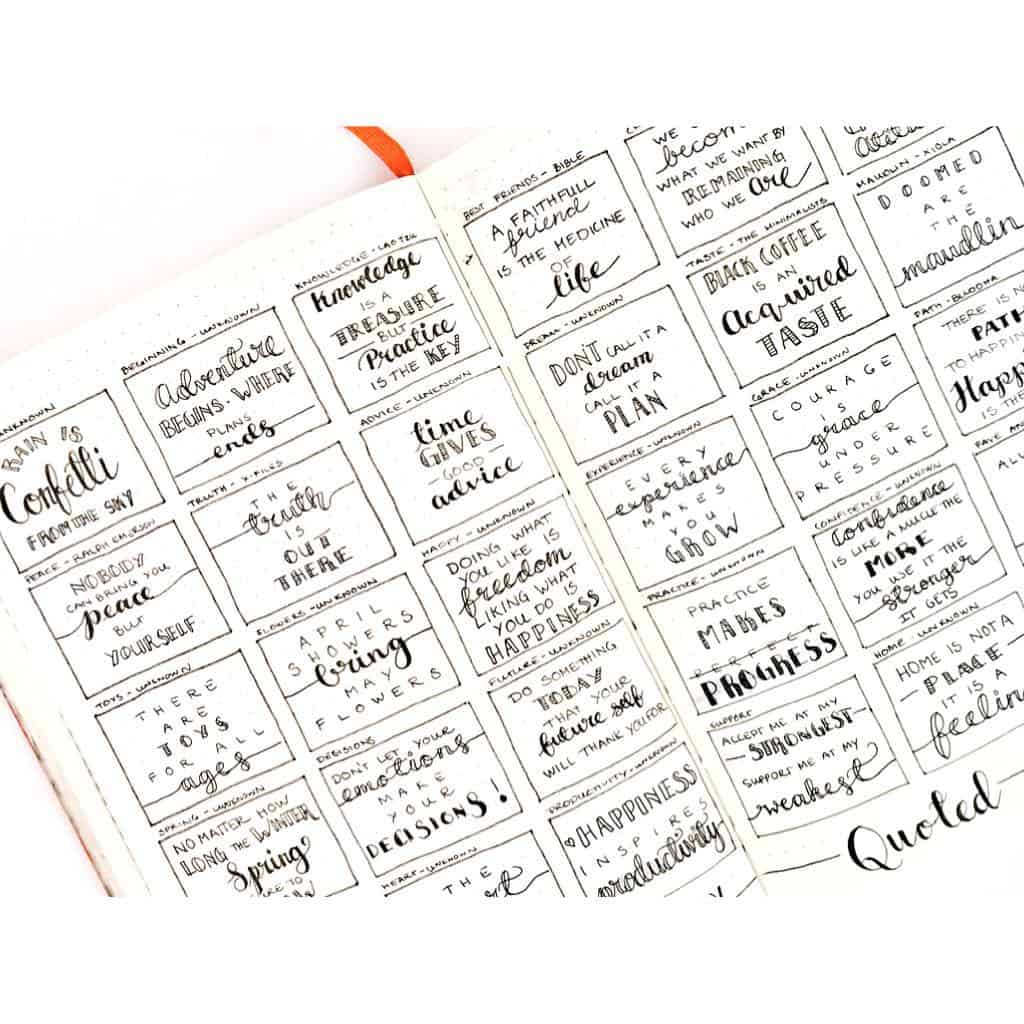 UNKNOWN
RAIN IS
Confetti
FROM THE SKY
PEACE - RALPH EMERSON
NOBODY
CAN BRING YOU
peace
BUT
YOURSELF
TOYS - UNKNOWN
THERE
ARE
TOYS
FOR ALL
ages
SPRING - UNKNOWN
NO MATTER HOW
LONG THE WINTER
Spring
TO
BEGINNING - UNKNOWN
Adventure
BEGINS WHERE
PLANS
ends
TRUTH - X-FILES
THE
truth
IS
OUT
THERE
FLOWERS - UNKNOWN
APRIL
SHOWERS
bring
MAY
FLOWERS
DECISIONS
DON'T LET YOUR
emotions
MAKE
YOUR
DECISIONS!
HEART - UNKNOWN
THE
KNOWLEDGE - LAO TZU
Knowledge
IS A
TREASURE
BUT
Practice
IS THE KEY
ADVICE - UNKNOWN
time
GIVES
GOOD
advice
HAPPY - UNKNOWN
DOING WHAT
YOU LIKE IS
freedom
LIKING WHAT
YOU DO IS
HAPPINESS
FUTURE - UNKNOWN
DO SOMETHING
TODAY
THAT YOUR
future self
WILL THANK YOU FOR
PRODUCTIVITY - UNKNOWN
HAPPINESS
INSPIRES
productivity
BEST FRIENDS - BIBLE
A FAITHFULL
friend
IS THE MEDICINE
OF
life
DREAM - UNKNOWN
DON'T CALL IT A
dream
CALL IT A
PLAN
EXPERIENCE - UNKNOWN
EVERY
experience
MAKES
YOU
GROW
PRACTICE - UNKNOWN
PRACTICE
MAKES
PERFECT
PROGRESS
SUPPORT
ACCEPT ME AT MY
STRONGEST
SUPPORT ME AT MY
weakest
WE
becom
WHAT WE WANT BY
REMAINING
WHO WE are
TASTE - THE MINIMALISTS
BLACK COFFEE
IS AN
Acquired
TASTE
GRACE - UNKNOWN
COURAGE
IS
grace
UNDER
PRESSURE
CONFIDENCE - UNKNOWN
Confidence
IS LIKE A MUSCLE THE
MORE
YOU USE IT THE
stronger
IT GETS
HOME - UNKNOWN
HOME IS NOT A
PLACE
IT IS A
feelin
MAUDLIN - XIOLA
DOOMED
ARE
THE
maudlin
PATH - BUDDHA
THERE IS NO
PATH
TO HAPPIN
Happ
IS THE
FAVE
ALL
Quoted